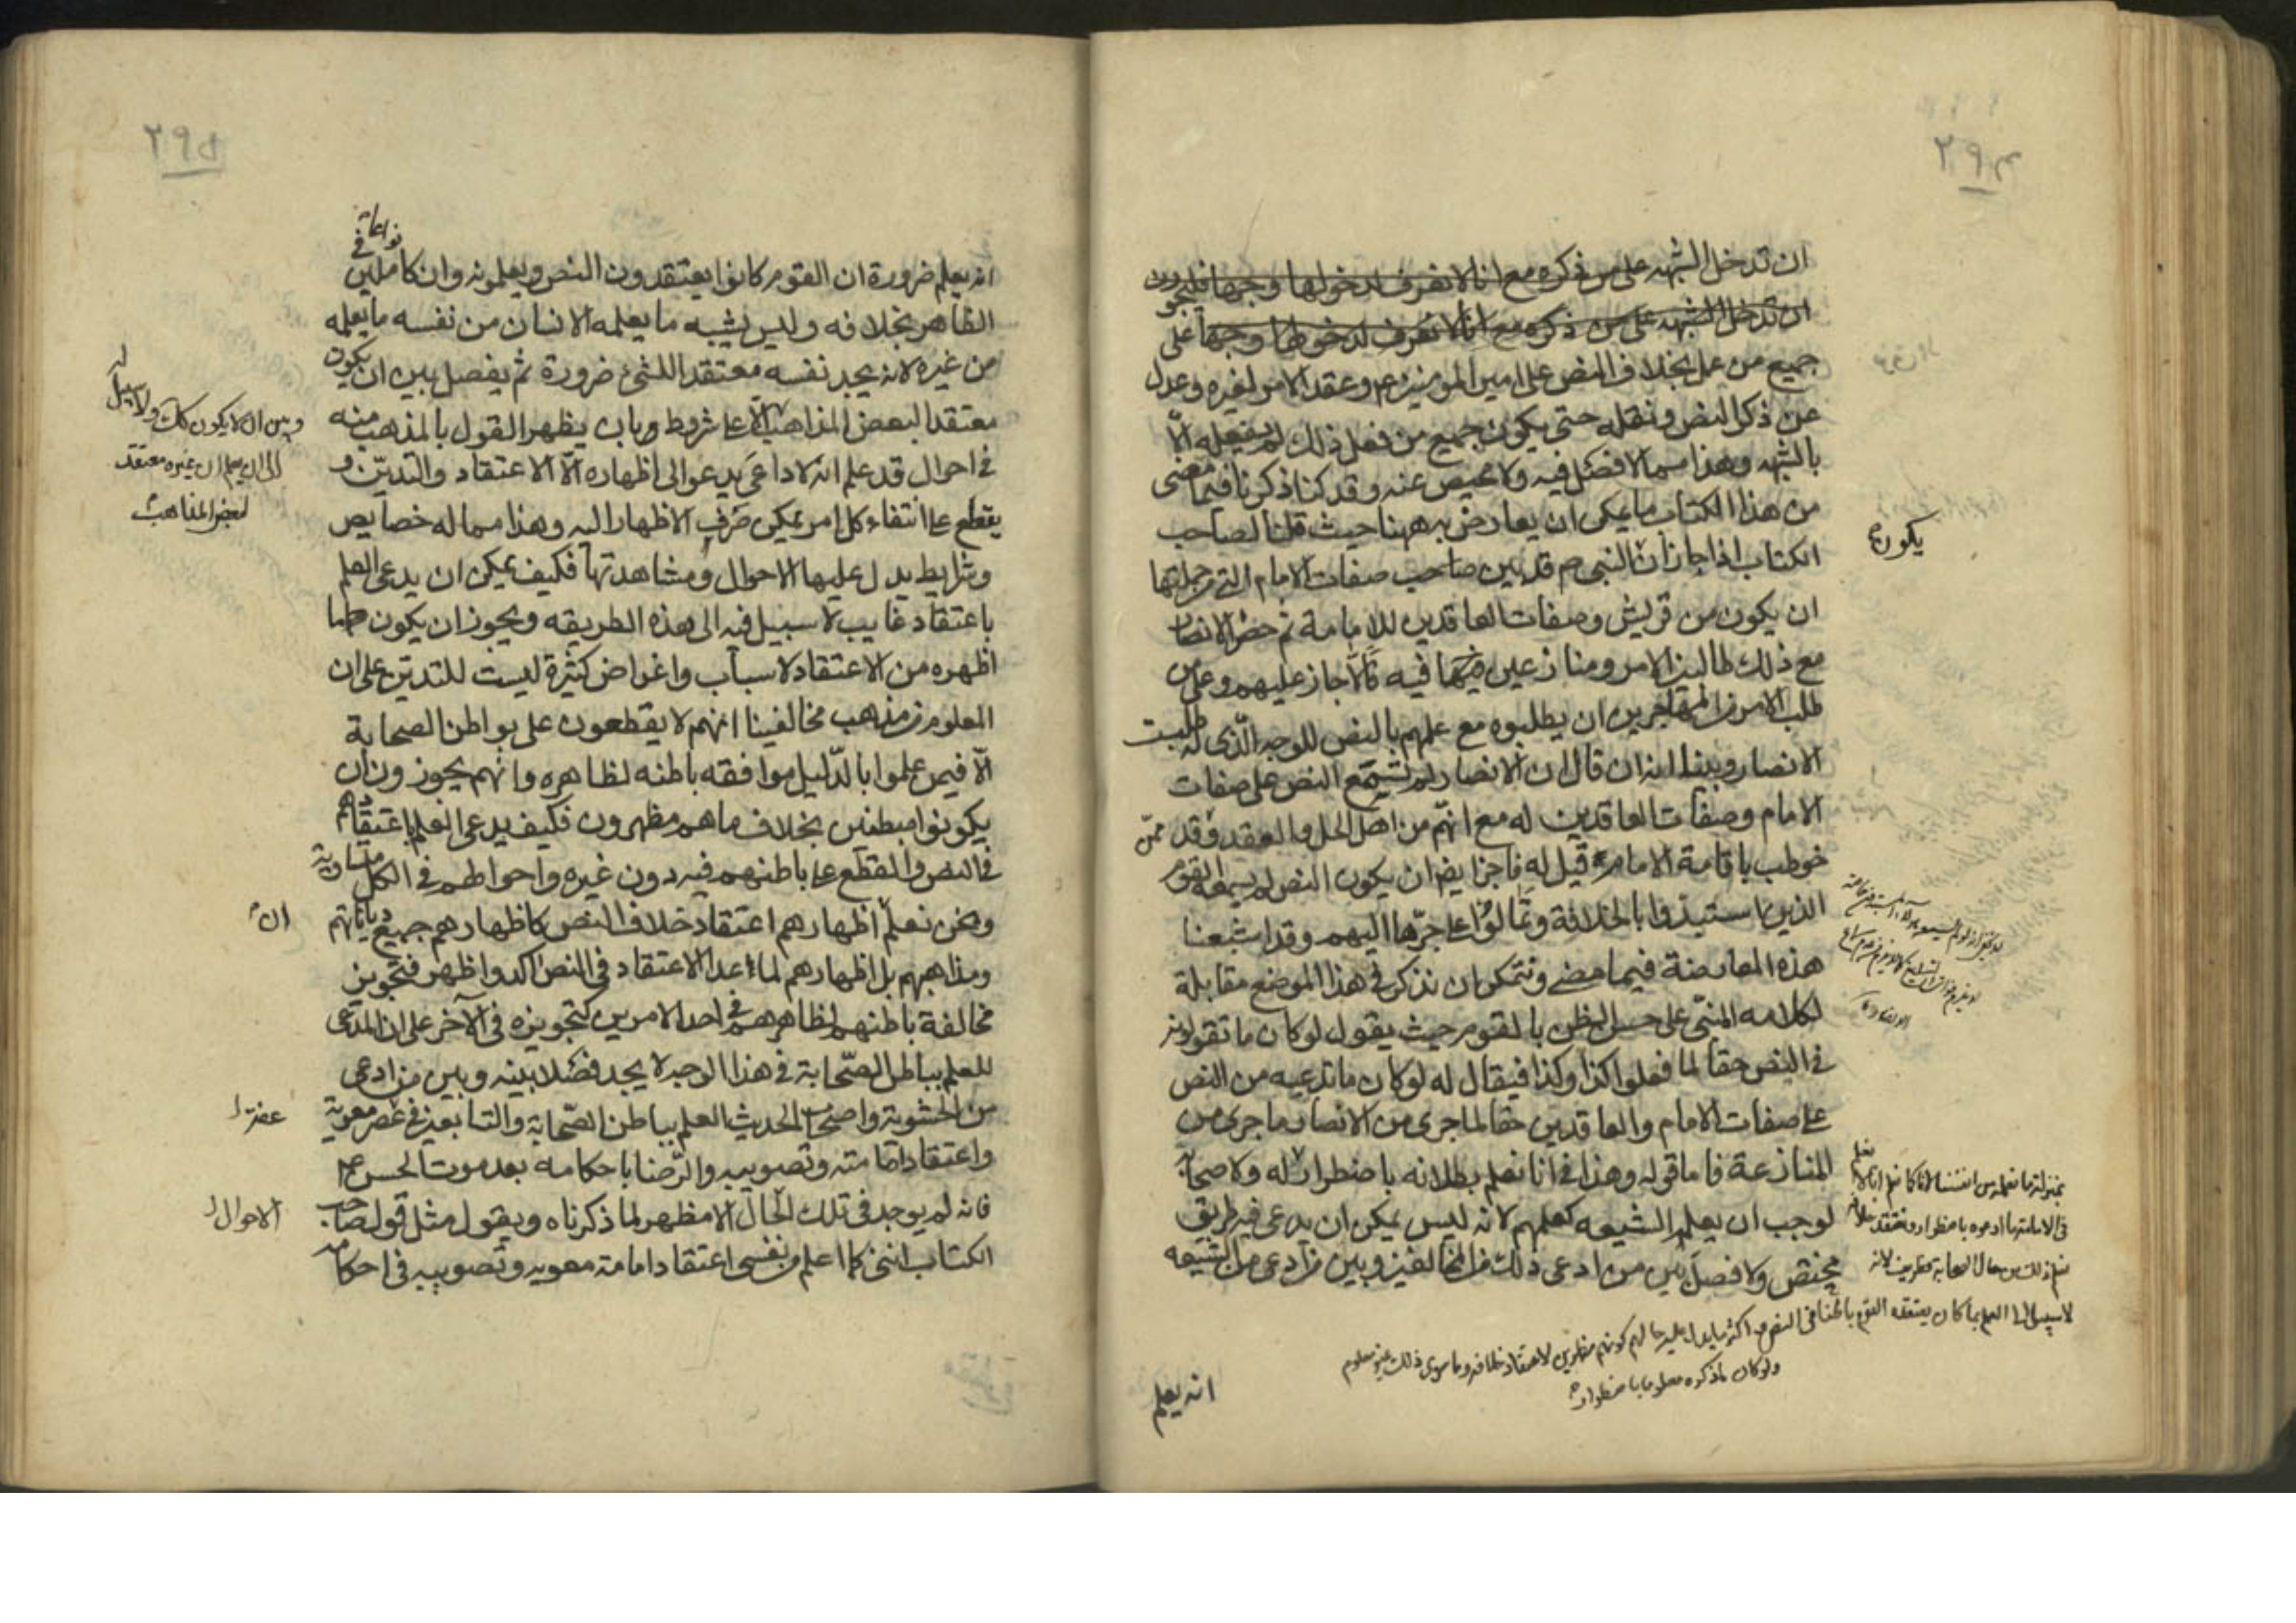 ٢٩٤
ان تدخل الشبهه على من ذكره مع انا لا نعرف لدخولها وجها فليجوزون
ان تدخل الشبهه على من ذكره مع انا لا نعرف لدخولها وجها على
جميع من عمل بخلاف النص على امير المومنين ع م وعقد الامر لغيره وعدل
عن ذكر النص ونقله حتى يكون جميع من فعل ذلك لم يفعله الّا
بالشبهه وهذا مما لا فضل فيه ولا محيص عنه وقد كنا ذكرنا فيما مضى
من هذا الكتاب ما يمكن ان يعارض به ههنا حيث قلنا لصاحب
الكتاب اذا جاز ان النبى ص م قد بين صاحب صفات الامام التى من جملتها
ان يكون من قريش وصفات العاقدين للامامة ثم حضر الانصار
مع ذلك طالبين الامر ومنازعين فيه الّا جاز عليهم وعلى من
طلب الامر من المهاجرين ان يطلبوه مع علمهم بالنص للوجه الّذى له طلبت
الانصار وبينا انه ان قال ان الانصار لم تسمع النص على صفات
الامام وصفات العاقدين له مع انهم من اهل الحل والعقد وقد ممّن
خوطب باقامة الامام قيل له فاجز ايضا ان يكون النص لم يسمعه القوم
الذين استبدوا بالخلافة وتمالوا على جرّها اليهم وقد اشبعنا
هذه المعارضة فيما مضى ونتمكن ان نذكر فى هذا الموضع مقابلة
لكلامه المبنى على حسن الظن بالقوم حيث يقول لو كان ما تقولونه
فى النص حقا لما فعلوا كذا وكذا فيقال له لو كان ما تدعيه من النص
على صفات الامام والعاقدين حقا لما جرى من الانصار ما جرى من
المنازعة فاما قوله وهذا فى انا نعلم بطلانه باضطرار له ولاصحابه
لوجب ان يعلم الشيعه كعلمهم لانه ليس يمكن ان يدعى فيه طريق
مختص ولا فصل بين من ادعى ذلك من المخالفين وبين من ادعى من الشيعه
يكون
بمنزلة ما نعلمه من انفسنا لانا كما نعلم انا لا
فى الامامة ما ادعوه باضطرار ونعتقد خلافه
نعلم ذلك من حال الصحابة لانه
لا سبيل الى العلم بما كان يعتقده القوم باطنا فى النص واكثر ما يدل عليه حالهم كونهم مظهرين لاعتقاد خلافه وما سوى ذلك غير معلوم
ولو كان ما ذكره معلوما باضطرار
انه يعلم
٢٩٥
انه يعلم ضرورة ان القوم كانوا يعتقدون النص ويعلمونه وان كانوا عاملين فى
الظاهر بخلافه وليس يشبه ما يعلمه الانسان من نفسه ما يعلمه
من غيره لانه يجد نفسه معتقدا للشئ ضرورة ثم يفصل بين ان يكون
معتقدا لبعض المذاهب الّا على شروط وباب يظهر القول بالمذهب منه
فى احوال قد علم انه لا داعى يدعو الى اظهاره الّا الاعتقاد والتديّن و
يقطع على انتفاء كل امر يمكن صرف الاظهار اليه وهذا مما له خصايص
وشرايط يدل عليها الاحوال ومشاهدتها فكيف يمكن ان يدعى العلم
باعتقاد غايب لا سبيل فيه الى هذه الطريقه ويجوز ان يكون ما
اظهره من الاعتقاد لاسباب واغراض كثيرة ليست للتدين على ان
المعلوم من مذهب مخالفينا انهم لا يقطعون على بواطن الصحابة
الّا فيمن علموا بالدّليل موافقه باطنه لظاهره وانهم يجوزون ان
يكونوا مبطنين بخلاف ما هم مظهرون فكيف يدعى العلم باعتقادهم
فى النص والقطع على باطنهم فيه دون غيره واحوالهم فى الكل متساوية
ونحن نعلم اظهارهم اعتقاد خلاف النص كاظهارهم جميع دياناتهم
ومذاهبهم بل اظهارهم لما عدا الاعتقاد فى النص اكد واظهر فتجويز
مخالفة باطنهم لظاهرهم فى احد الامرين كتجويزه فى الآخر على ان المدّعى
للعلم بباطن الصّحابة فى هذا الوجه لا يجد فضلا بينه وبين من ادعى
من الحشوية واصحاب الحديث العلم بباطن الصّحابة والتابعين فى عصر معوية
واعتقاد امامته وتصويبه والرّضا باحكامه بعد موت الحسن ع م
فانه لم يوجد فى تلك الحال الا مظهر لما ذكرناه ويقول مثل قول صاحب
الكتاب اننى كما اعلم من نفسى اعتقاد امامة معويه وتصويبه فى احكامه
وبين ان لا يكون كك ولا سبيل له
الى ان يعلم ان غيره معتقد
لبعض المذاهب
ان
عصر
الاحوال